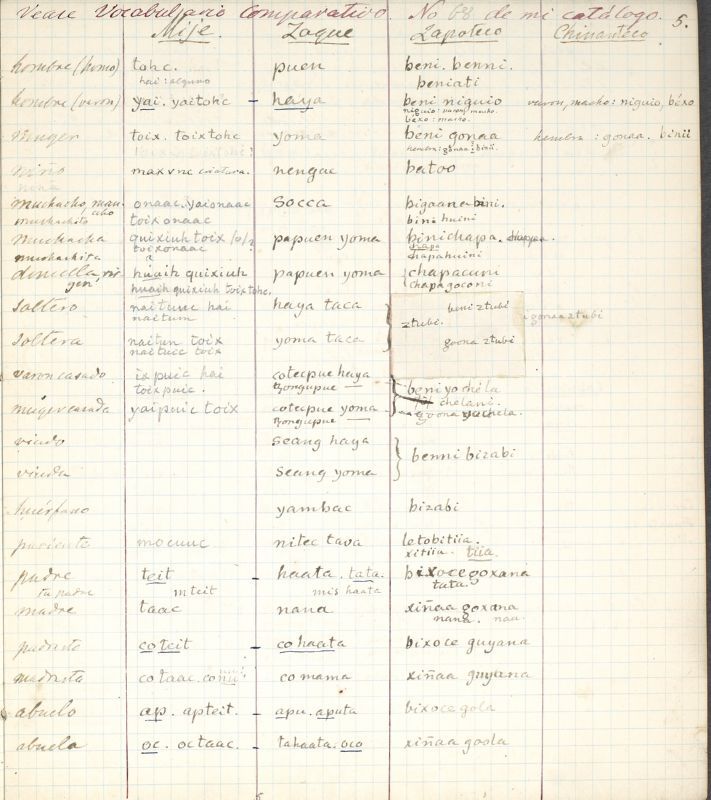 Vease Vocabulario Comparativo. No 68 de mi catálogo. 5.
Mije. Zoque Zapoteco Chinanteco
hombre (homo) tohc. puen beni. benni.
hai: alguno beniati
hombre (varon) yai. yaitohc – haya beni niguio varon, macho: niguio, béxo
niguio: varon, macho.
bexo: macho.
muger toix. toixtohc yoma beni gonaa hembra: gonaa. binii
hembra: gonaa: binii.
niño maxunc criatura. nengue batoo
muchacho, mau- onaac. yaionaac socca bigaana bini.
muchachito toixonaac bini huini
muchacha quixiuh toix papuen yoma binichapa.
muchachita toixonaac chapahuini
doncella, vir- huaih quixiuh papuen yoma chapacuni
gen huaih quixiuh toixtohc. chapagoconi
soltero naitunc hai haya taca beni ztubi
naitum ztubi. gonaa ztubi
soltera naitun toix yoma taca goona ztubi
naitucc toix
varon casado ix puic hai cotecpue haya beni yo chela
toixpuic. tzongupue chelani.
muger casada yaipuic toix cotecpue yoma goona yuchela.
tzongupue
viudo seang haya benni bizabi
viuda seang yoma
huérfano yambac bizabi
pariente mocuuc nitec tava letobitiia.
xitiia. tiia.
padre teit – haata. tata. bixoce goxana
tu padre mteit mis haata tata.
madre taac nana xiñaa goxana
nana. naa.
padrasto coteit – cohaata bixoce guyana
madrasta cotaac. comama xiñaa guyana
abuelo ap. apteit. – apu. aputa bixoce gola
abuela oc. octaac. – tahaata. oco xiñaa goola